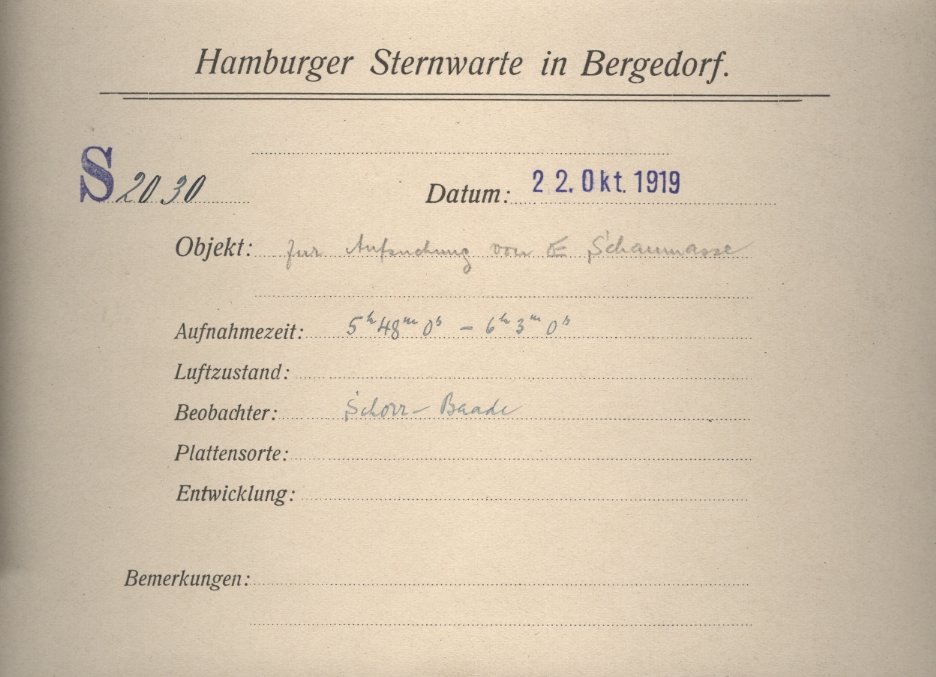 Hamburger Sternwarte in Bergedorf.
S 2030
Datum: 22. Okt. 1919
Objekt: zur Aufsuchung von Schaumasse
Aufnahmezeit: 5h 48m 0s – 6h 3m 0s
Luftzustand:
Beobachter: Schorr – Baade
Plattensorte:
Entwicklung:
Bemerkungen: